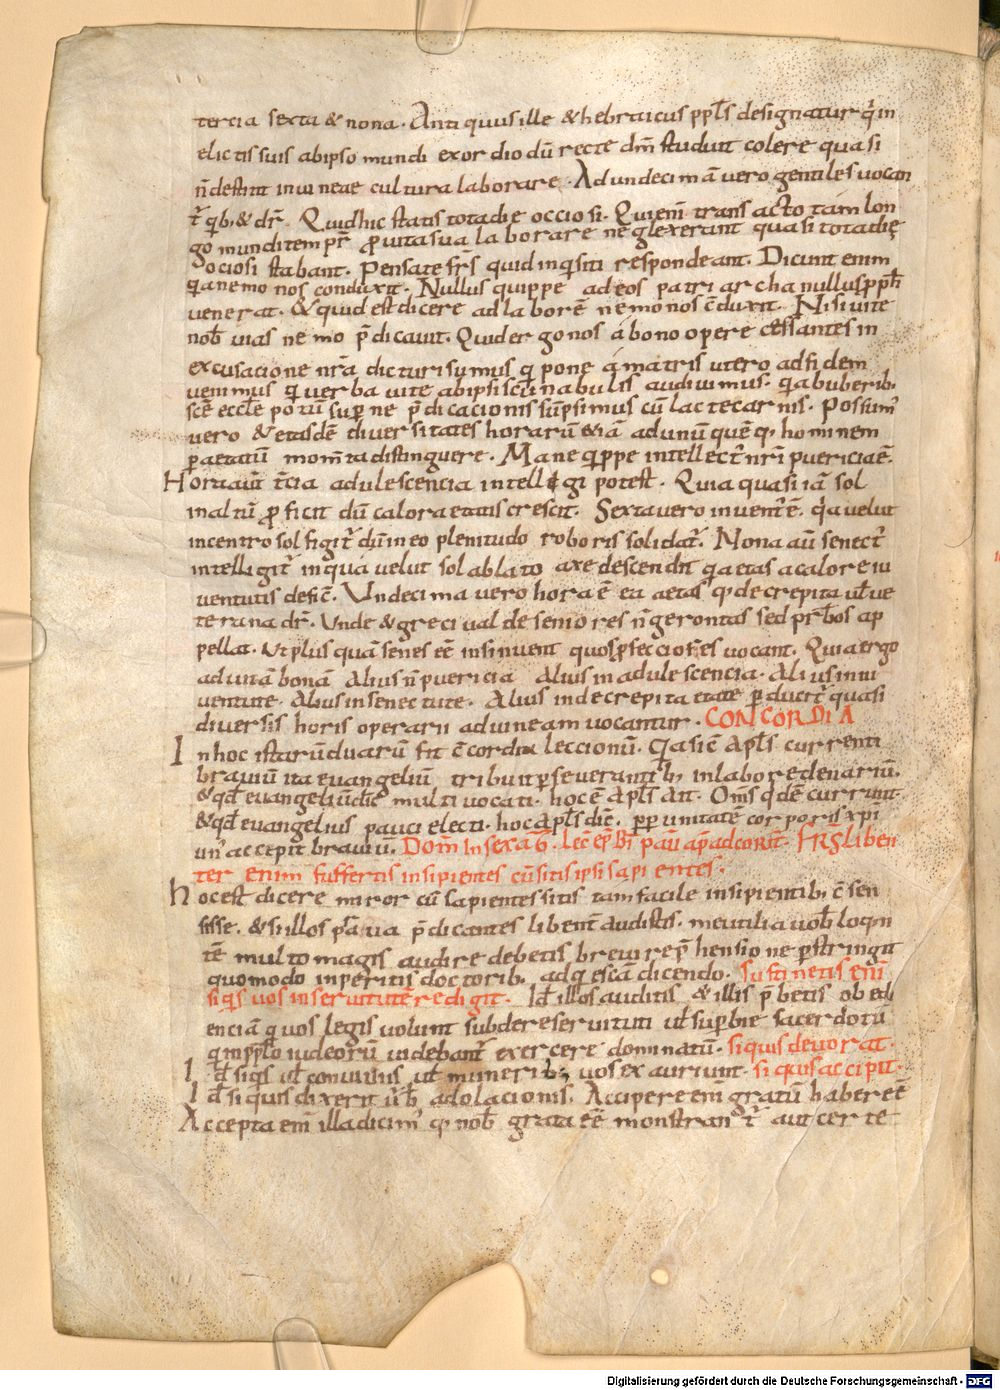 tercia sexta & nona. Antiquus ille & hebraicus ppl̄s designatur q̄ in
elictis suis ab ipso mundi exordio dū recte dm̄ studuit colere quasi
n̄ destitit in uineae cultura laborare. Ad undecimā vero gentiles uocan
t᷑ qb; & dr̄. Quid hic statis tota die occiosi. Qui eni᷑ transacto tam lon
go mundi tempr̄ ꝓ uita sua laborare neglexerant quasi tota die
ociosi stabant. Pensate fr̄s quid inq̇siti respondeant. Dicunt enim
q̇a nemo nos conduxit. Nullus quippe ad eos patriarcha nullus ꝓph̄
venerat. & quid est dicere ad laborē nemo nos c̄duxit. Nisi uite
nob̄ uias nemo p̄dicauit. Quid ergo nos á bono opere cessantes in
excusacione nr̄a dicturi sumus q̇ pone á matris utero ad fidem
venimus q̇ verba vite ab ipsis cunabulis audiuimus. q̇ ab uberib;
scē eccl̄e potū sup̄ne p̄dicacionis sūpsimus cū lacte carnis. Possum᷒
vero & easdē diuersitates horarū &iā ad unū quēq; hominem
ꝑ aetatū mom̄ta distinguere. Mane q̇ppe intellect᷒ nr̄i puericia ē.
Hora aut̄ t̄cia adulescencia intelligi potest. Quia quasi iā sol
in altū ꝓficit dū calor aetatis crescit. Sexta vero iuuent᷒ ē. q̇a velut
in centro sol figit᷑ dū in eo plenitudo roboris solidat᷑. Nona aū senect᷒
intelligit᷑ in qua velut sol ab lato axe descendit q̇a etas a calore iu
ventutis defic̄. Undecima vero hora ē ea aetas q̄ decrepita ut̄ ve
terana dr̄. Unde & greci ualde seniores n̄ gerontas sed pr̄b̄os ap
pellat. Ut plus quā senes eē insinuent quos ꝓuecciores vocant. Quia ergo
ad uitā bonā alius in puericia alius in adulescencia. alius in iu
ventute. alius in senectute. Alius in decrepita etate ꝑducit᷑ quasi
diuersis horis operarii ad uineam uocantur. CONCORDIA
In hoc istarū duarū fit c̄cordia leccionū. Quia sic̄ apl̄s currenti
brauiū ita euangeliū tribuit ꝑseuerantib; in labore denariū.
& qd̄ euangeliū dic̄ multi vocati. hoc ē apl̄s ait. Om̄s q̇dē currunt.
& qd̄ euangelius pauci electi. hoc apl̄s dic̄. ꝓpt̄ unitatē corporis xp̄i
un᷒ accepit brauiū. Dom̄ in sexag̅. Lec̄ ep̄ bī pauī ap̄ ad corit̄. Fr̄s liben
ter enim suffertis insipientes cū sitis ipsi sapientes.
Hoc est dicere miror cū sapientes sitis tam facile insipientib; c̄sen
sisse. & si illos praua p̄dicantes libent᷑ audistis. me utilia uob̄ loqn
tē multo magis audire debetis. breui rep̄hensione ꝑstringit
quomodo imperitis doctorib; adq̇escā dicendo. Sustinetis eni᷑
si q̇s uos in seruitutē redigit. Id ē illos auditis & illis p̄betis obedi
enciā q̇ uos legis uolunt subdere seruituti ut̄ suꝑbie sacerdotū
q̇ in ppl̄o iudeorū uidebant᷑ exercere dominatū. si quis deuorat.
Id ē si q̇s ut̄ conuiuiis ut̄ munerib; uos exauriunt. si quis accipit.
Id ē si quis dixerit ūb̄ adolacionis. Accipere eni᷑ gratū habere ē
Accepta eni᷑ illa dicim᷒ q̄ nob̄ grata eē monstrant᷑ aut certe
Digitalisierung gefördert durch die Deutsche Forschungsgemeinschaft - DFG